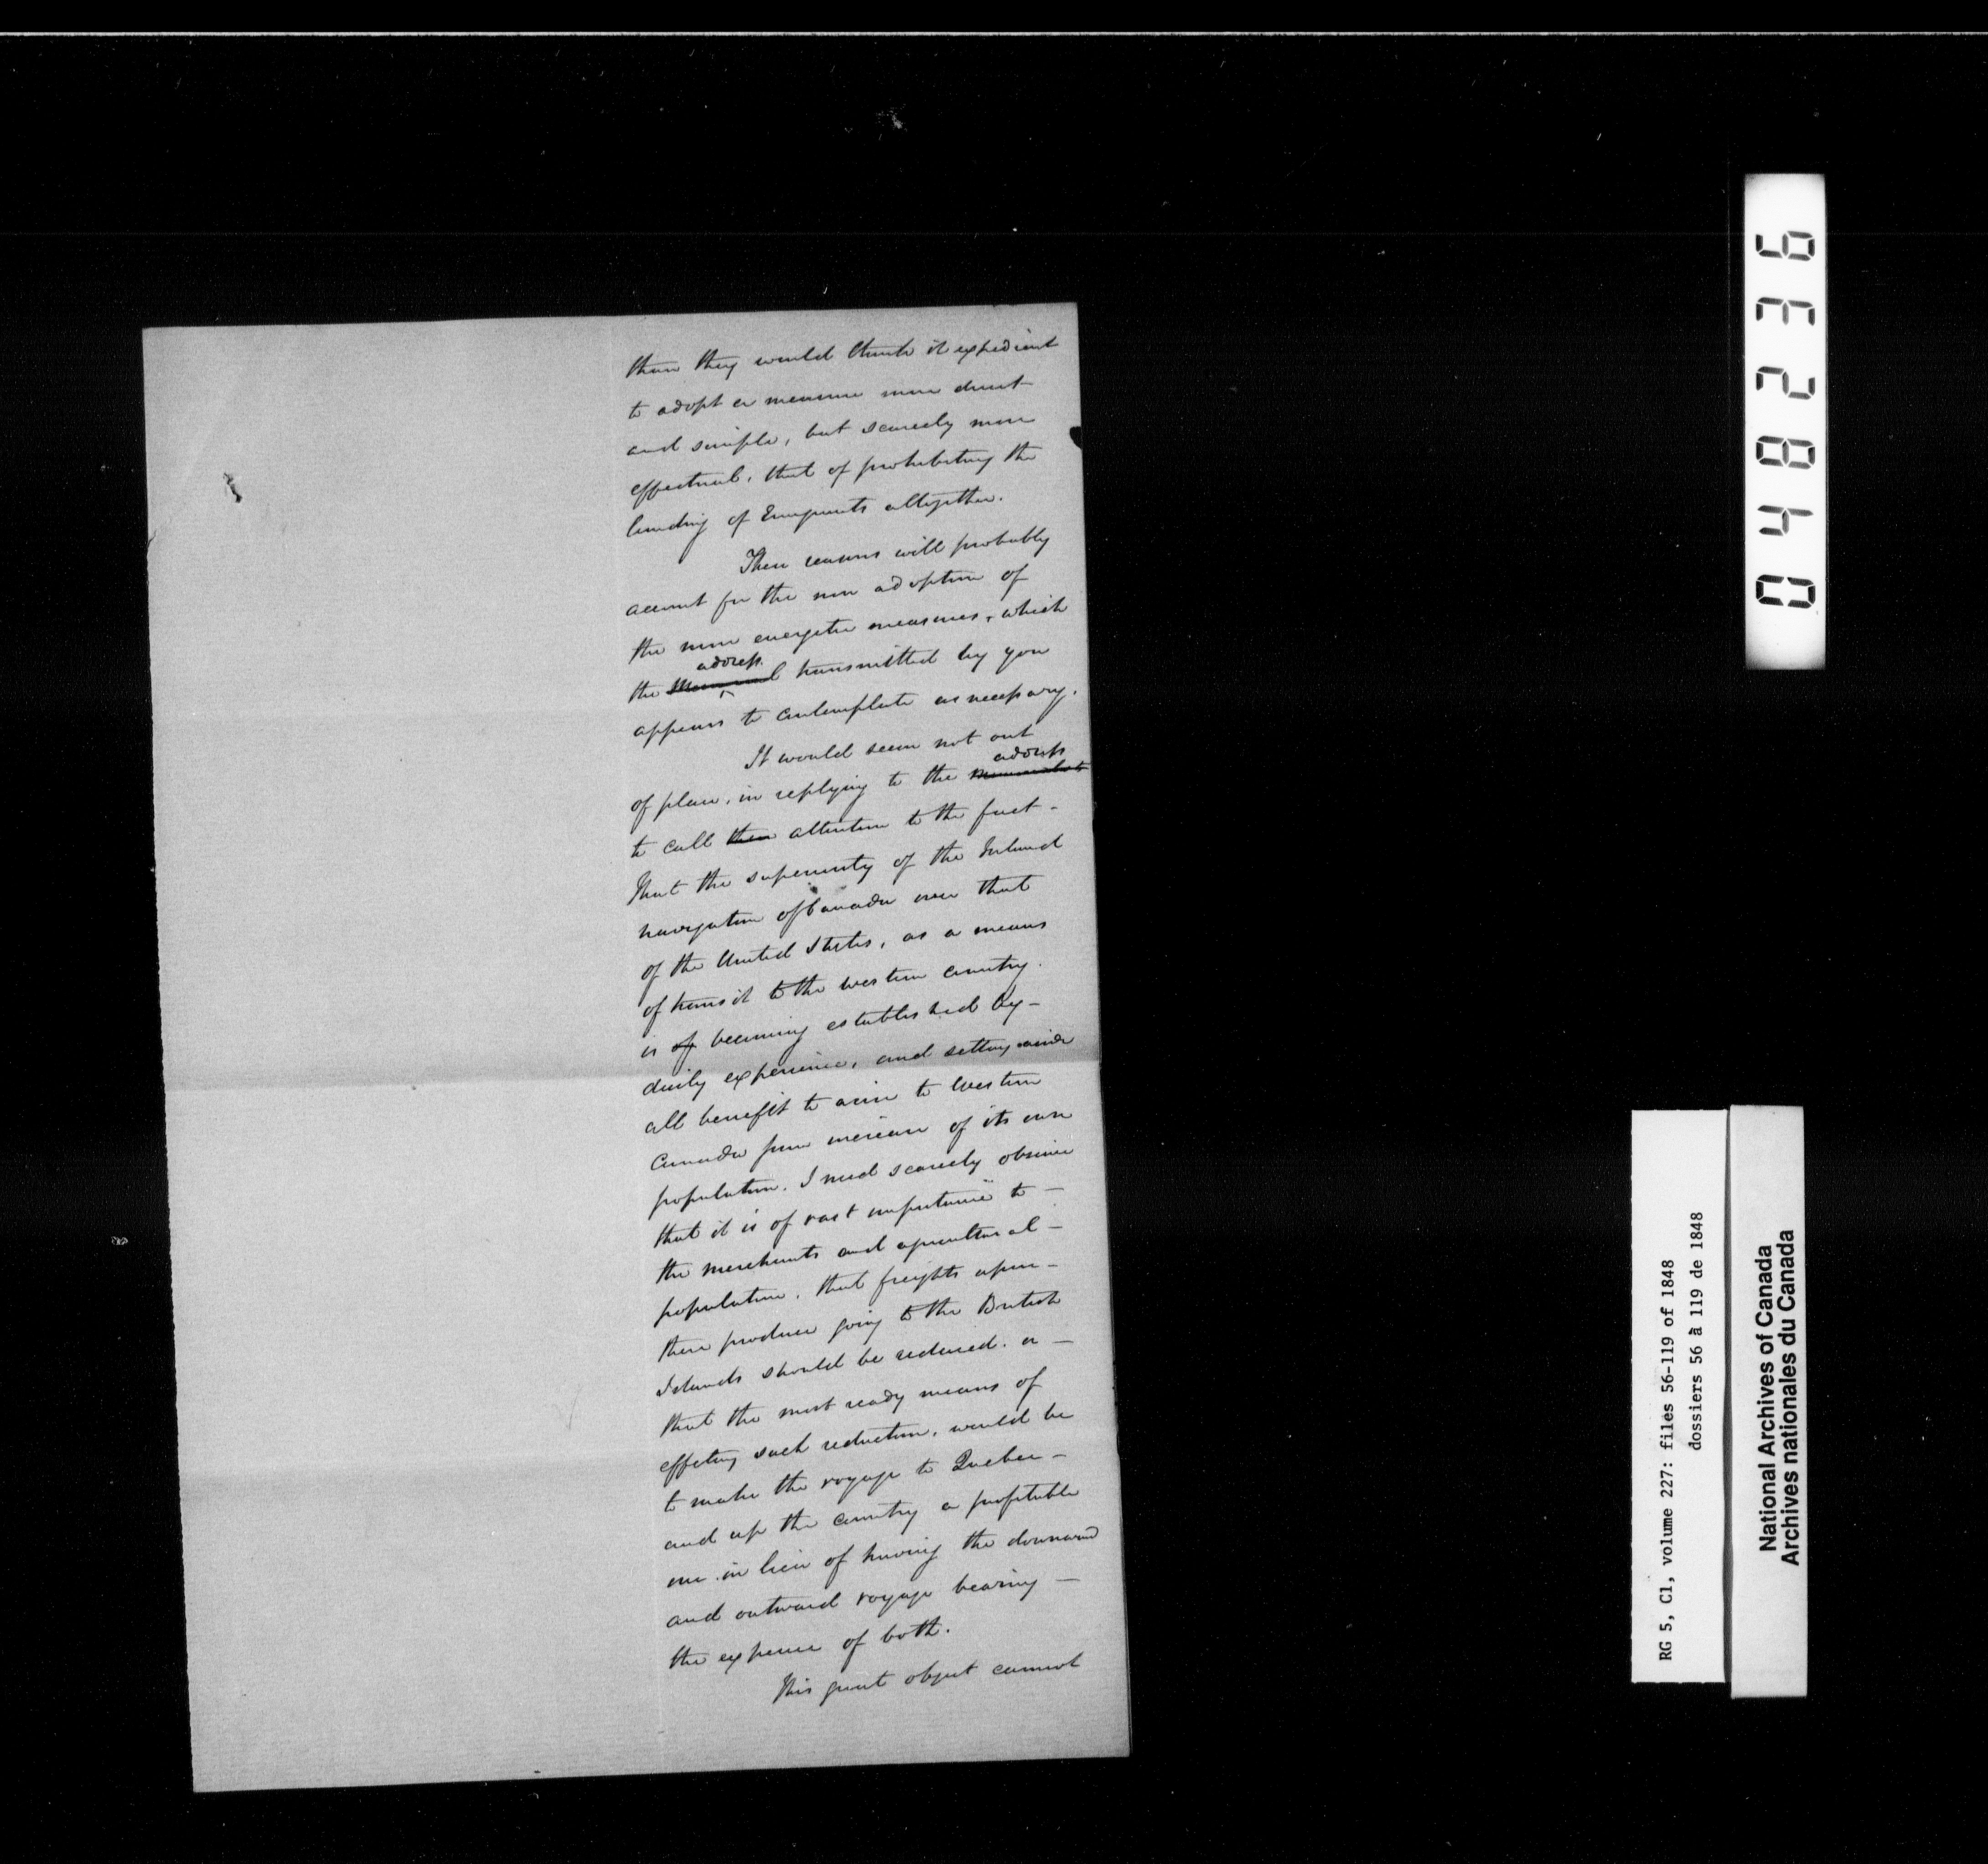 than they would think it expedient
to adopt a measure more direct
and simple, but scarcely more
effectual, that of prohibiting the
landing of Emigrants altogether.
These reasons will probably
account for the non adoption of
the more energetic measures, which
address
the Memorial transmitted by you
appears to contemplate as necessary.
It would seem not out
address
of place, in replying to the
to call their attention to the fact -
that the superiority of the Inland
navigation of Canada over that
of the United States, as a means
of transit to the western country.
is of becoming established by -
daily experience, and setting aside
all benefit to arise to Western
Canada from increase of its own
population, I need scarcely observe
that it is of vast importance to -
the merchants and agricultural -
population, that freights upon -
their produce going to the British
Islands should be reduced. or -
that the most ready means of
effecting such reduction, would be
to make the voyage to Quebec -
and up the country a profitable
one in lieu of having the downward
and outward voyage bearing -
the expense of both.
This great object cannot
048236
RG 5, C1, volume 227: files 56-119 of 1848
dossiers 56 à 119 de 1848
National Archives of Canada
Archives nationales du Canada